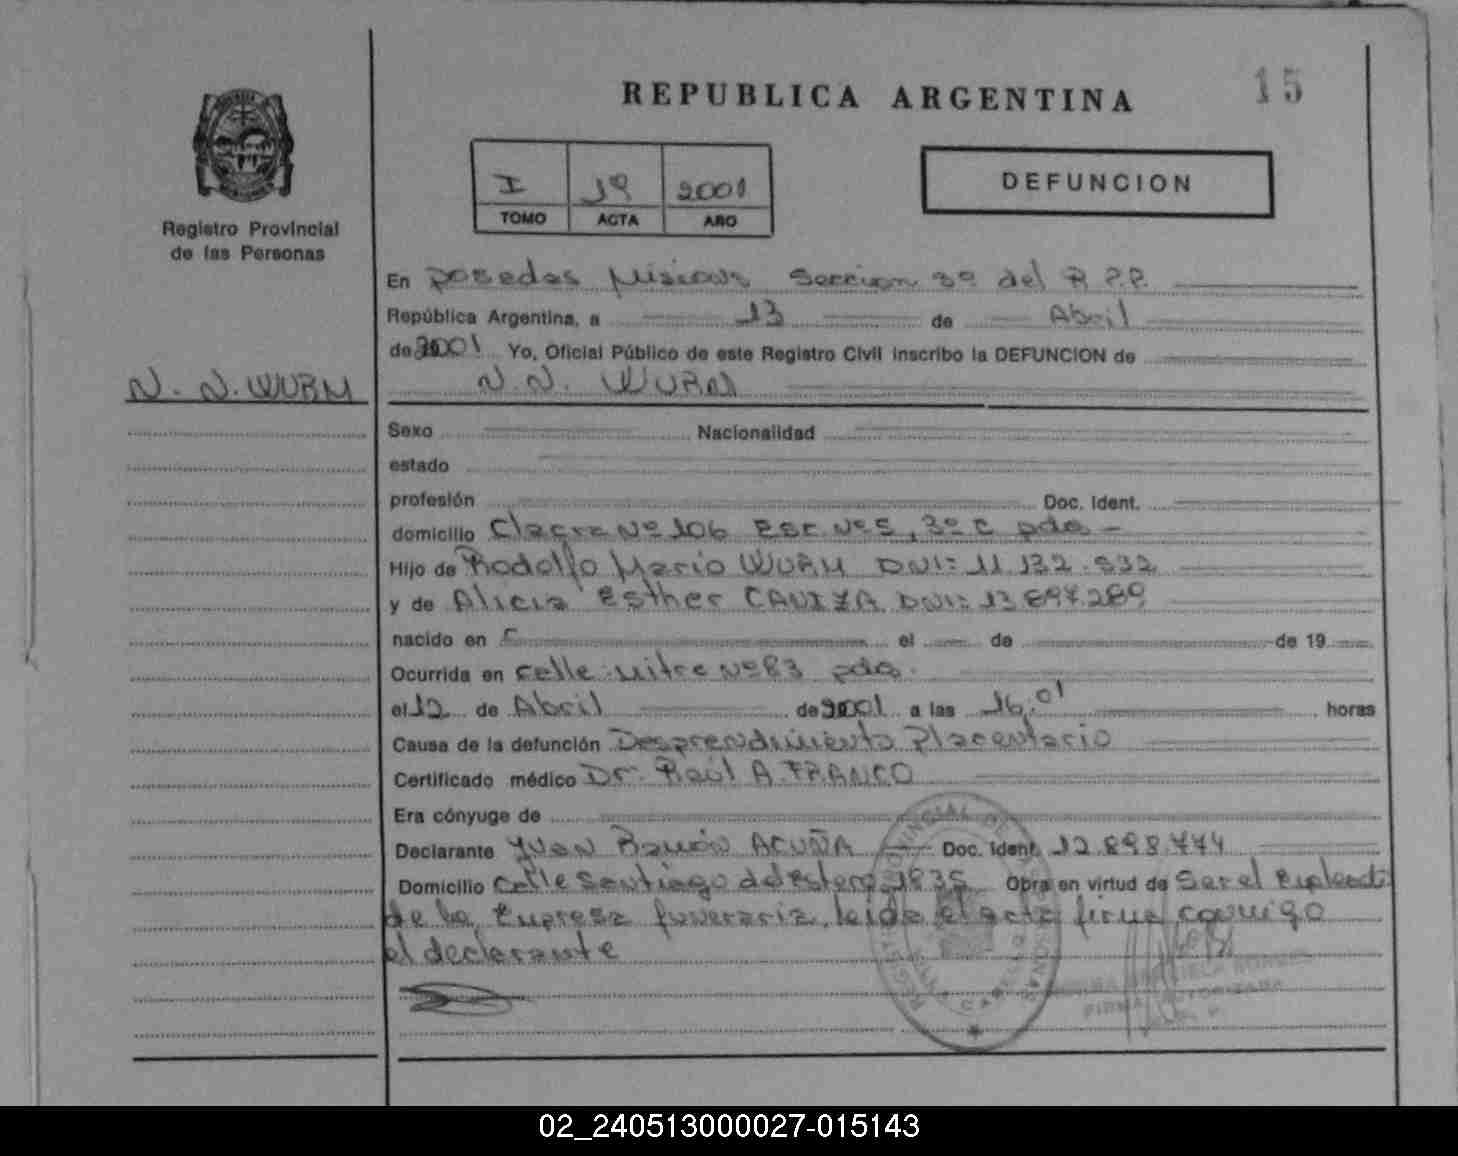 15
REPUBLICA ARGENTINA
I 19 2001
TOMO ACTA AÑO
DEFUNCION
Registro Provincial
de las Personas
N. N. WURM
En Posadas Misiones Seccion 3º del R.P.P.
República Argentina, a 13 de Abril
de 2001 Yo, Oficial Público de este Registro Civil inscribo la DEFUNCION de
N. N. WURM
Sexo Nacionalidad
estado
profesión Doc. Ident.
domicilio Chacra Nº 106 Esc. Nº 5, 3º C pdas
Hijo de Rodolfo Mario WURM DNI: 11.132.932
y de Alicia Esther DNI: 13.897.289
nacido en el de de 19
Ocurrida en calle Mitre Nº 83 pdas.
el 12 de Abril de 2001 a las 16,01 horas
Causa de la defunción Desprendimiento Placentario
Certificado médico Dr. Raúl A. FRANCO
Era cónyuge de
Declarante Juan Ramón ACUÑA Doc. Ident. 12.898.774
Domicilio Calle Santiago del Estero 1835 Obra en virtud de Ser el Empleado
de la Empresa funeraria, leida el acta firma conmigo
el declarante
02_240513000027-015143